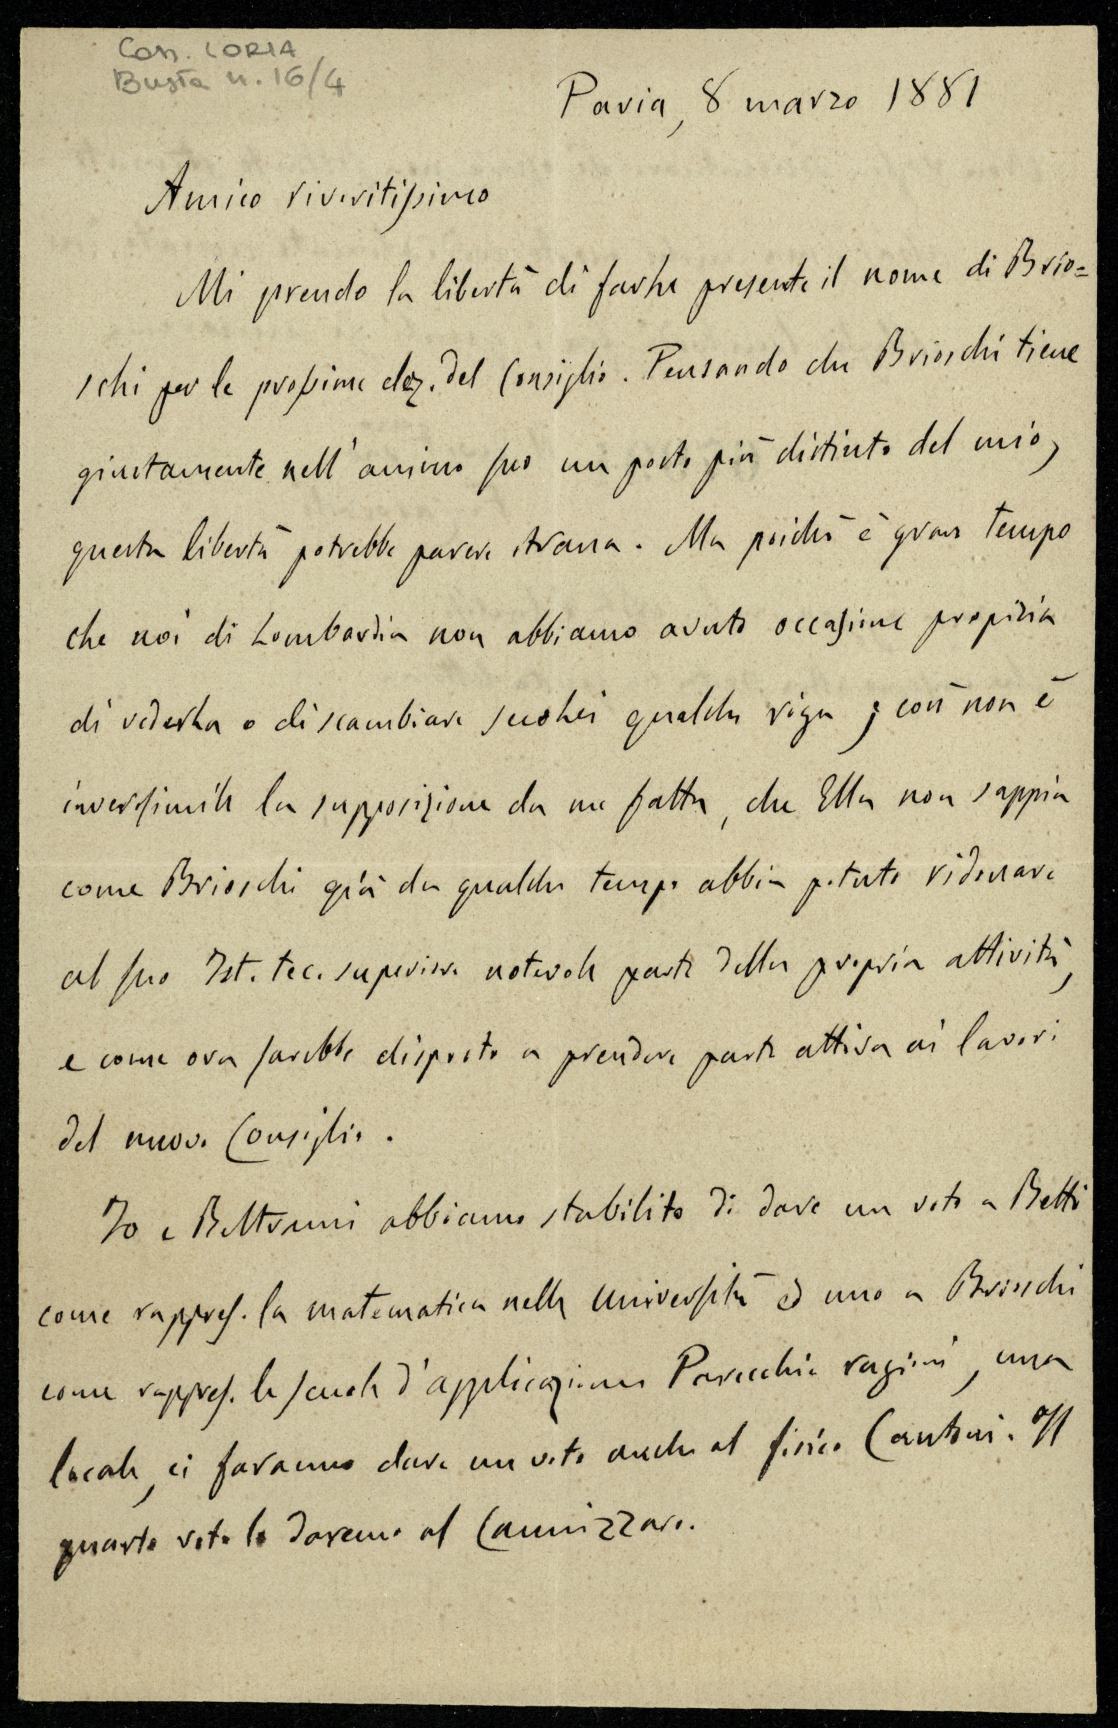 Cass. LORIA
Busta n. 16/4
Pavia, 8 marzo 1881
Amico riveritissimo
Mi prendo la libertà di farle presente il nome di Brio=
schi per le prossime elez. del Consiglio. Pensando che Brioschi tiene
giustamente nell'animo suo un posto più distinto del mio,
questa libertà potrebbe parere strana. Ma poichè è gran tempo
che noi di Lombardia non abbiamo avuto occasione propizia
di vederla o di scambiare seco lei qualche riga; così non è
inverosimile la supposizione da me fatta, che Ella non sappia
come Brioschi già da qualche tempo abbia potuto ridonare
al suo Ist. tec. superiore notevole parte della propria attività,
e come ora sarebbe disposto a prendere parte attiva ai lavori
del nuovo Consiglio.
Io e Beltrami abbiamo stabilito di dare un voto a Betti
come rappres. la matematica nelle Università ed uno a Brioschi
come rappres. le scuole d'applicazione. Parecchie ragioni, una
locale, ci faranno dare un voto anche al fisico Cantoni. Il
quarto voto lo daremo al Cannizzaro.